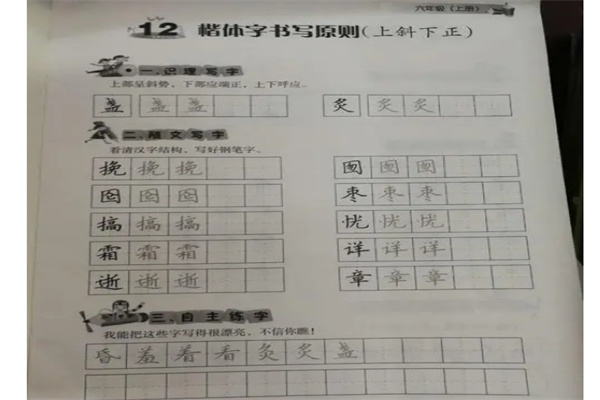 六年级(上册)
12 楷体字书写原则(上斜下正)
一、识理写字
上部呈斜势，下部应端正，上下呼应。
盏 盏 盏 炙 炙 炙
二、随文写字
看清汉字结构，写好钢笔字。
挽 挽 挽 囫 囫 囫
囵 囵 囵 枣 枣 枣
搞 搞 搞 恍 恍 恍
霜 霜 霜 详 详 详
逝 逝 逝 章 章 章
三、自主练字
我能把这些字写得很漂亮，不信你瞧！
昏 羞 着 看 灸 炙 盏